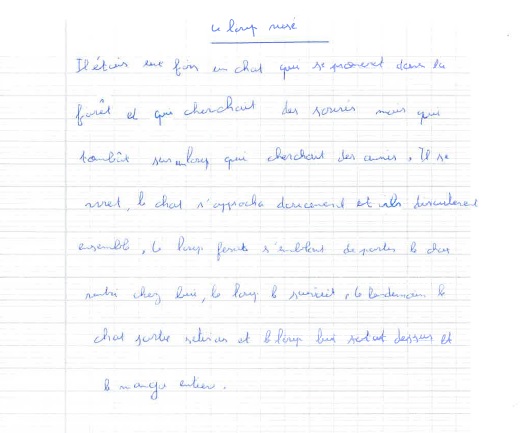 le loup rusé
Il étais une fois un chat que se promenet dans la
forêt et que cherchait des souris mais que
tombût sur un loup qui cherchait des amis, Il se
, le chat s'approcha doucement et ils discuterent
ensemble, le loup s'emblant de partir le chat
rentre chez lui, le loup le suivait, le lendemain le
chat sortie et le loup lui sautat dessus et
le mangea entier.